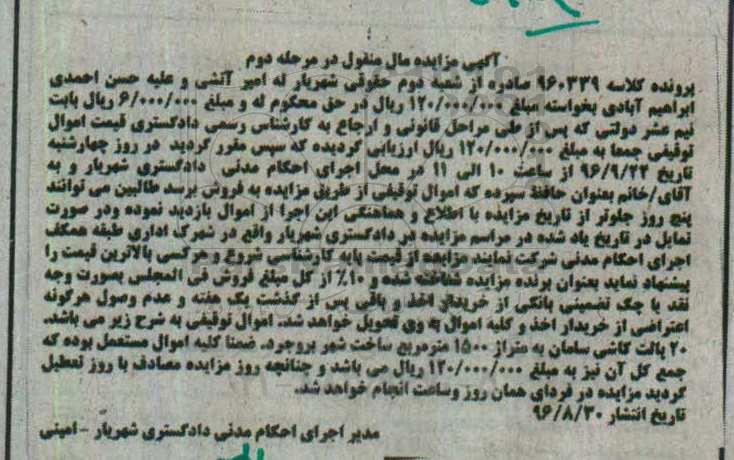 آگهی مزایده مال منقول در مرحله دوم
پرونده کلاسه ۹۶۰۳۳۹ صادره از شعبه دوم حقوقی شهریار له امیر آتشی و علیه حسن احمدی
ابراهیم آبادی بخواسته مبلغ ۱۲۰/۰۰۰/۰۰۰ ریال در حق محکوم له و مبلغ ۶/۰۰۰/۰۰۰ ریال بابت
نیم عشر دولتی که پس از طی مراحل قانونی و ارجاع به کارشناس رسمی دادگستری قیمت اموال
توقیفی جمعا به مبلغ ۱۲۰/۰۰۰/۰۰۰ ریال ارزیابی گردیده که سپس مقرر گردید در روز چهارشنبه
تاریخ ۹۶/۹/۲۲ از ساعت ۱۰ الی ۱۱ در محل اجرای احکام مدنی دادگستری شهریار و به
آقای/خانم بعنوان حافظ سپرده که اموال توقیفی از طریق مزایده به فروش برسد طالبین می توانند
پنج روز جلوتر از تاریخ مزایده با اطلاع و هماهنگی این اجرا از اموال بازدید نموده ودر صورت
تمایل در تاریخ یاد شده در مراسم مزایده در دادگستری شهریار واقع در شهرک اداری طبقه همکف
اجرای احکام مدنی شرکت نمایند مزایده از قیمت پایه کارشناسی شروع و هرکسی بالاترین قیمت را
پیشنهاد نماید بعنوان برنده مزایده شناخته شده و ۱۰٪ از کل مبلغ فروش فی المجلس بصورت وجه
نقد یا چک تضمینی بانکی از خریدار اخذ و باقی پس از گذشت یک هفته و عدم وصول هرگونه
اعتراضی از خریدار اخذ و کلیه اموال به وی تحویل خواهد شد. اموال توقیفی به شرح زیر می باشد.
۲۰ پالت کاشی سامان به متراژ ۱۵۰۰ مترمربع ساخت شهر بروجرد. ضمنا کلیه اموال مستعمل بوده که
جمع کل آن نیز به مبلغ ۱۲۰/۰۰۰/۰۰۰ ریال می باشد و چنانچه روز مزایده مصادف با روز تعطیل
گردید مزایده در فردای همان روز وساعت انجام خواهد شد.
تاریخ انتشار ۹۶/۸/۳۰
مدیر اجرای احکام مدنی دادگستری شهریار - امینی